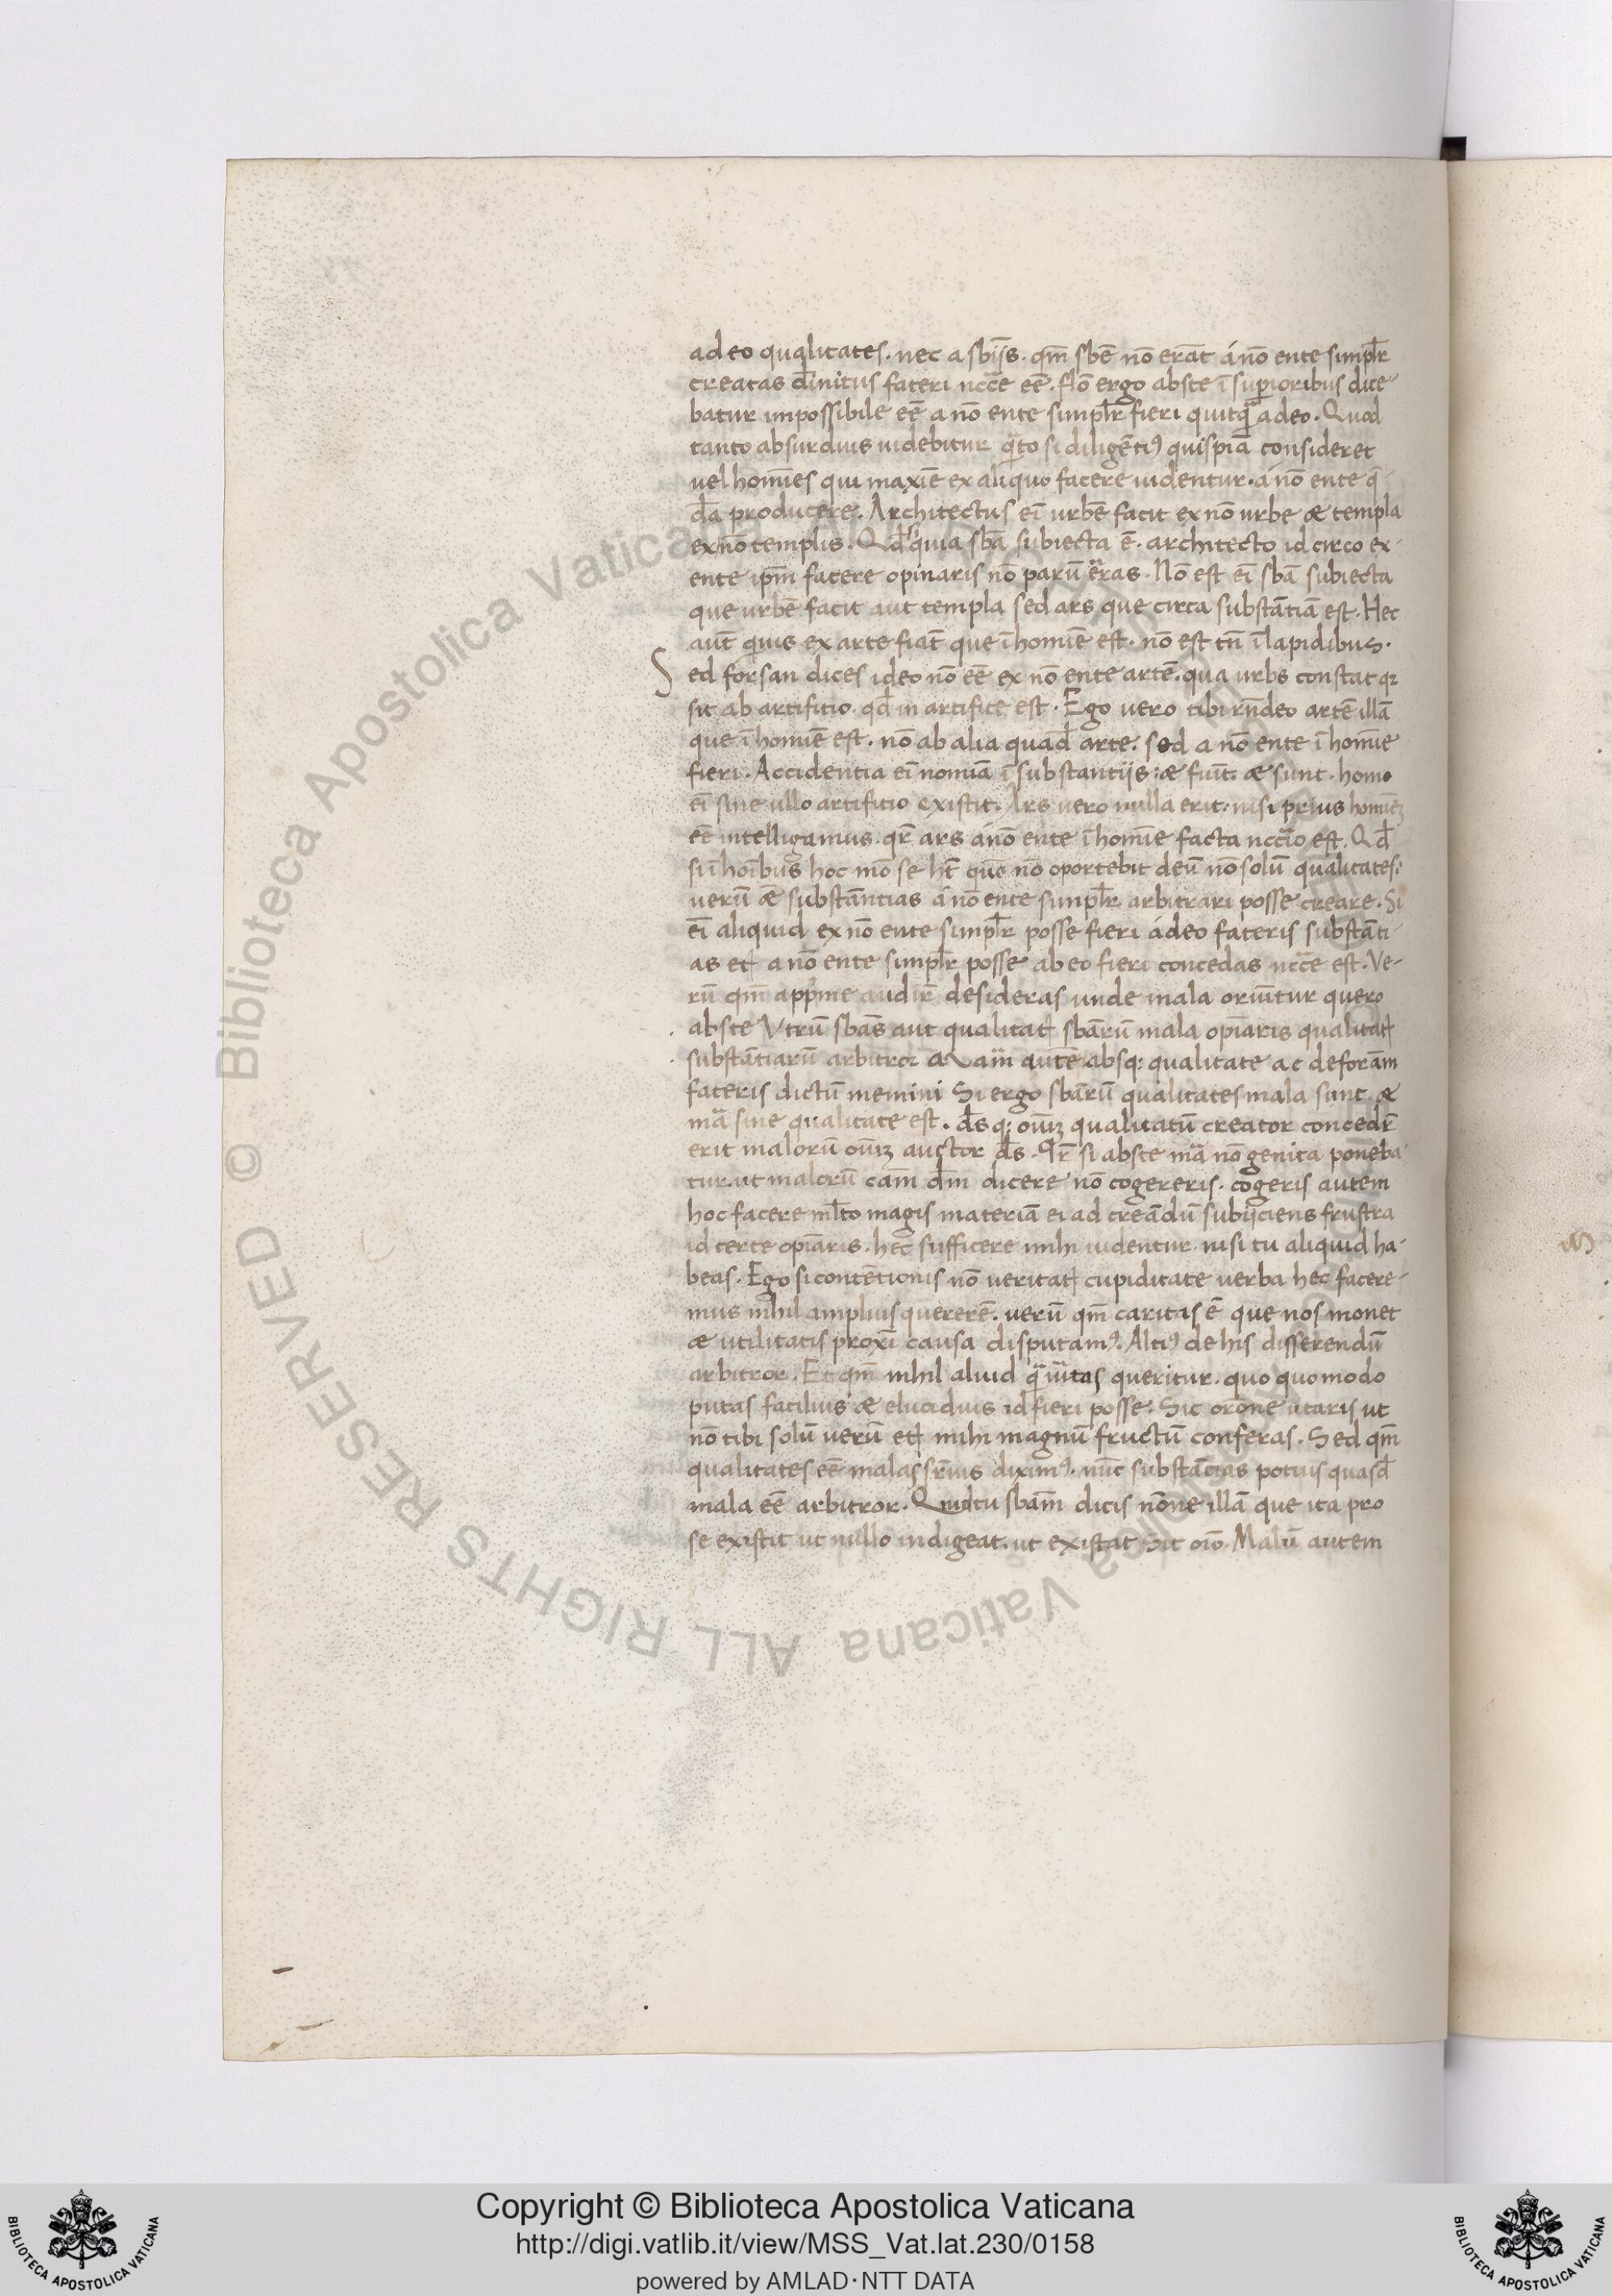 adeo qualitates. nec a sb̄ijs. qm̄ sbē nō erāt á nō ente simplr̄
creatas diūinitus fateri nccē eē. Nō ergo abste ī superioribus dice-
batur impossibile eē a nō ente simplr̄ fieri quicq̄ adeo. Quod
tanto absurdius uidebitur q̄to si diligētiꝰ quispiā consideret
uel homīes qui maxīe ex aliquo facere uidentur. á nō ente q̄-
dā producere. Architectus eī urbē facit ex nō urbe & templa
ex nō templis. Qd̄ quia sbā subiecta ē. architecto idcirco ex
ente ipm̄ facere opinaris nō parū erras. Nō est eī sbā subiecta
que urbē facit aut templa sed ars que circa substātiā est. Hec
aūt quis ex arte fiāt que ī homīe est. nō est tn̄ ī lapidibus.
Sed forsan dices ideo nō eē ex nō ente artē. qua urbs constat qꝛ
sit ab artificio. qd̄ in artifice est. Ego vero tibi rn̄deo artē illā
que ī homīe est. nō ab alia quad̄ arte. sed a nō ente ī homīe
fieri. Accidentia eī nomīa ī substantijs: & fiūt. & sunt. homo
eī sine ullo artificio existit. Ars vero nulla erit. nisi prius homīeȝ
eē intelligamus. qr̄ ars á nō ente ī homīe facta nccīo est. Qd̄
si ī hoībus hoc mō se ht̄ quō nō oportebit deū nō solū qualitates:
uerū & substāntias á nō ente simplr̄ arbitrari posse creare. Si
eī aliquid ex nō ente simplr̄ posse fieri ádeo fateris substāti-
as etꝉ a nō ente simplr̄ posse ab eo fieri concedas nccē est. Ve-
rū qm̄ apprime audir̄ desideras unde mala oriūtur quero
abste Vtrū sbās aut qualitatꝉ sbārū mala opīaris qualitatꝉ
substātiarū arbitror Mām autē absqꝫ qualitate ac deforām
fateris dictū memini Si ergo sbārū qualitates mala sunt &
mā sine qualitate est. ds̄ qꝫ oīuȝ qualitatū creator concedr̄
erit malorū oīuȝ auctor ds̄. Qr̄ si abste mā nō genita ponēba
tur. ut malorū cām dm̄ dicere nō cogereris. cogeris autem
hoc facere ml̄to magis materiā ei ad creādū subijciens frustra
id certe opīaris. hec sufficere mihi uidentur nisi tu aliquid ha-
beas. Ego si contētionis nō veritatꝉ cupiditate uerba hec facere-
mus nihil amplius quererē. uerū qm̄ caritas ē que nos monet
& utilitatis proxī causa disputamꝰ. Altiꝰ de his disserendū
arbitror. Et qm̄ nihil aliud q̄ ūitas queritur. quo quomodo
putas facilius & elucidius id fieri posse. Sic orōne utaris ut
nō tibi solū uerū etꝉ mihi magnū fructū conferas. Sed qm̄
qualitates eē malas suꝑius diximꝰ. nūc substātias potius quasd̄
mala eē arbitror. Quid tu sbām dicis nōne illā que ita pro
se existit ut nullo indigeat. ut existat Sic oīo. Malū autem
Copyright © Biblioteca Apostolica Vaticana
http://digi.vatlib.it/view/MSS_Vat.lat.230/0158
powered by AMLAD·NTT DATA
BIBLIOTECA APOSTOLICA VATICANA
BIBLIOTECA APOSTOLICA VATICANA
© Biblioteca Apostolica Vaticana
ALL RIGHTS RESERVED